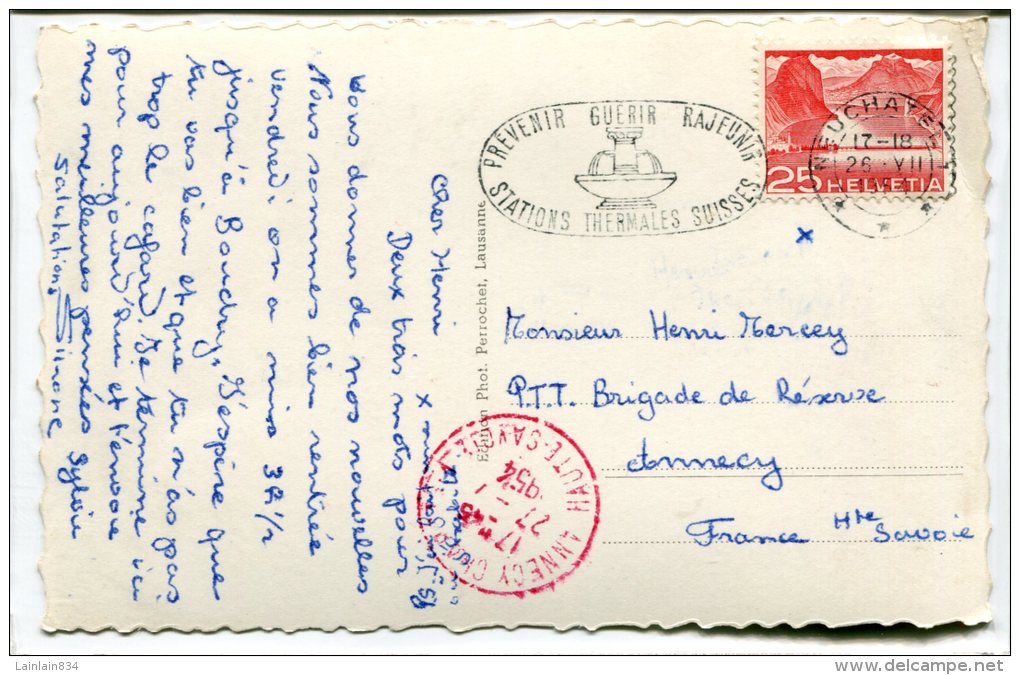 PRÉVENIR GUÉRIR RAJEUNIR
STATIONS THERMALES SUISSES
25 HELVETIA
NEUCHATEL
17-18
26.VII
Monsieur Henri Mercey
P.T.T. Brigade de Réserve
Annecy
Hte Savoie
France
Edition Phot. Perrochet, Lausanne
ANNECY
HAUTE-SAVOIE
17 H 45
27 - 7
1954
Cher Henri
Deux trois mots pour
vous donner de nos nouvelles
Nous sommes bien rentrée
vendredi on a mis 3h 1/2
jusqu'à Boudry, J'éspère que
tu vas bien et que tu n'as pas
trop le cafard. Je termine ici
pour aujourd'hui et t'envoie
mes meilleures pensées Sylvie
Salutations Simone
Lainlain834
www.delcampe.net